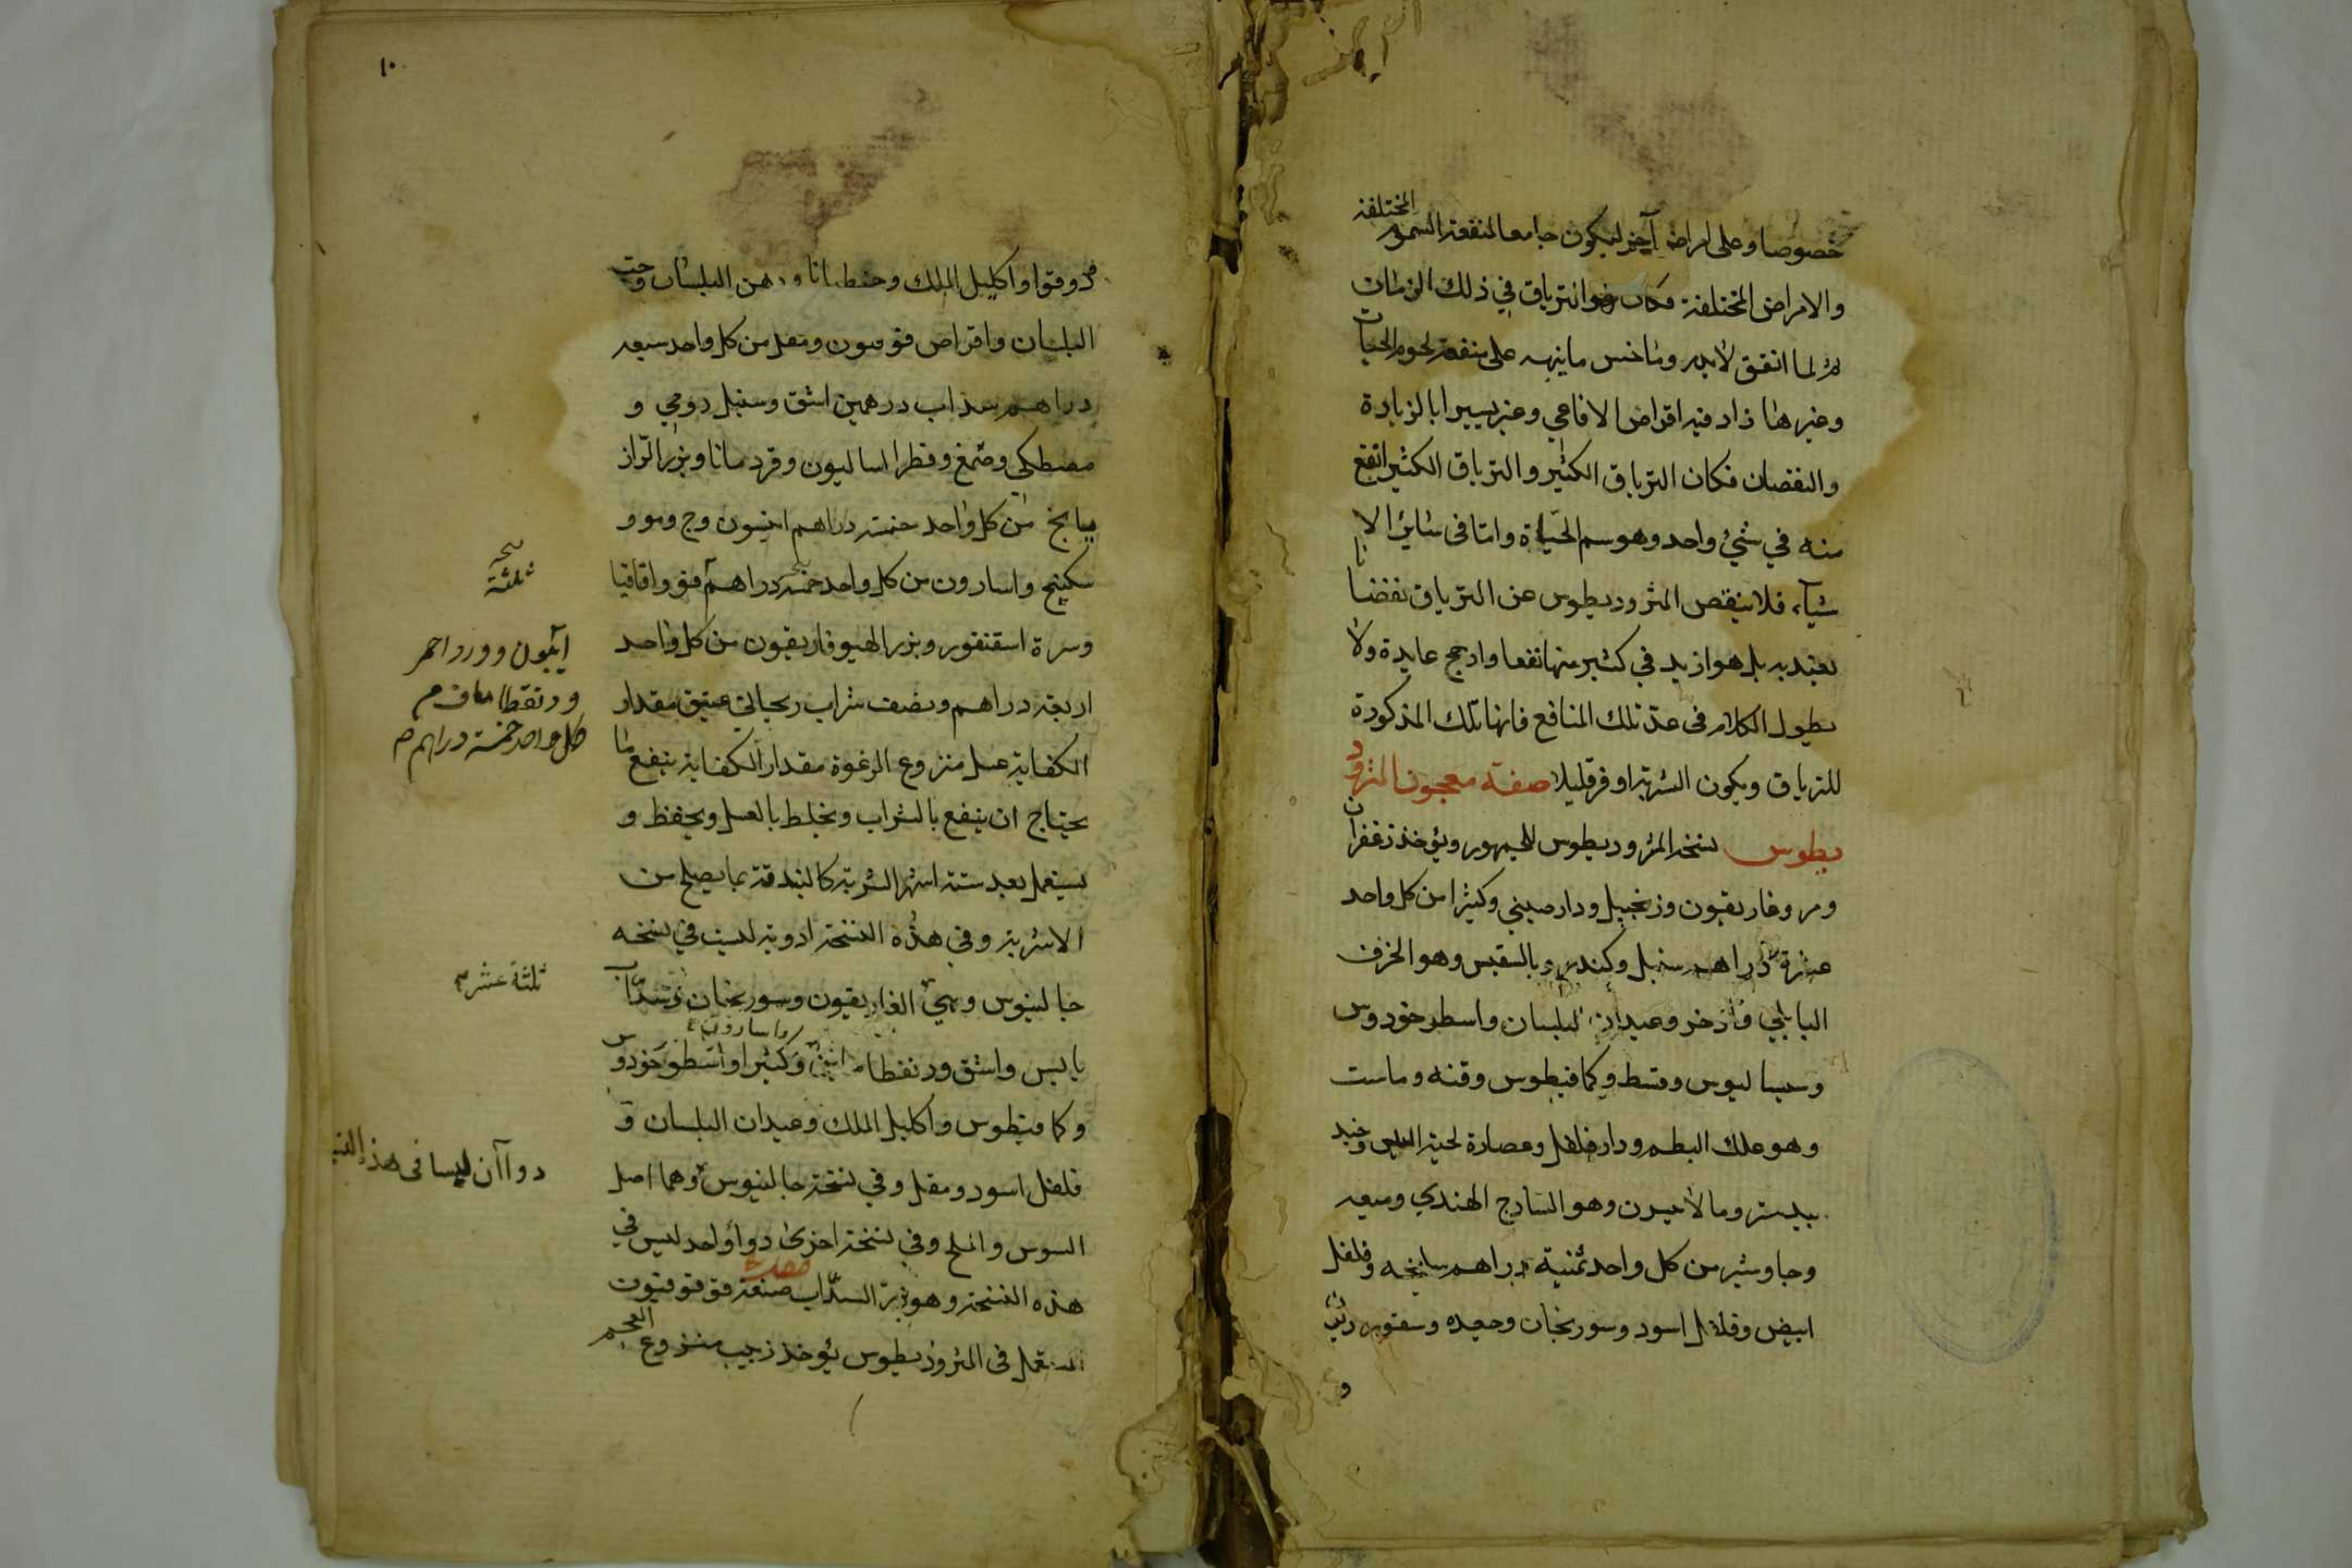 خصوصا وعلى امراض آخر ليكون جامعا لمنفعة السموم المختلفة
والامراض المختلفة فكان هو الترياق في ذلك الزمان
ثم لما اتفق لاندروماخس ما ينبه على منفعة لحوم الحيات
وغيرها زاد فيه اقراص الافاعي وغير يسيرا بالزيادة
والنقصان فكان الترياق الكبير والترياق الكبير انفع
منه في شيء واحد وهو سم الحياة واما في سائر الا
شياء فلا ينقص المثروديطوس عن الترياق نقصا
يعتد به بل هو ازيد في كثير منها نفعا وارجح عايدة ولا
يطول الكلام في عد تلك المنافع فانها تلك المذكورة
للترياق ويكون الشربة اوفر قليلا صفة معجون المثرود
يطوس نسخة المثروديطوس للجمهور ويؤخذ زعفران
ومر وغاريقون وزنجبيل ودارصيني وكثيرا من كل واحد
عشرة دراهم سنبل وكندر وبالسقيس وهو الحرف
البابلي واذخر وعيدان البلسان واسطوخودوس
وسيساليوس وقسط وكمافيطوس وقنه وماست
وهو علك البطم ودارفلفل وعصارة لحية التيس وجند
بيدستر ومالاثيرن وهو السادج الهندي وميعه
وجاوشير من كل واحد ثمنية دراهم سليخه وفلفل
ابيض وفلفل اسود وسورنجان وجعده وسقنور
و
١٠
دوقوا واكليل الملك وجنطيانا ودهن البلسان وحب
البلسان واقراص قوفيون ومقل من كل واحد سبعه
دراهم سذاب درهمين اشق وسنبل رومي و
مصطكى وصمغ وفطراساليون وقردمانا وبزر الراز
يانج من كل واحد خمسة دراهم انيسون وج ومو و
سكبينج واسارون من كل واحد خمسة دراهم فو واقاقيا
وسرة اسقنقور وبزر الهيوفاريقون من كل واحد
اربعة دراهم ونصف شراب ريحاني عتيق مقدار
الكفاية عسل منزوع الرغوة مقدار الكفاية ينقع ما
يحتاج ان ينقع بالشراب ويخلط بالعسل ويحفظ و
يستعمل بعد ستة اشهر الشربة كالبندقة بما يصلح من
الاشربة وفي هذه النسخة ادوية ليست في نسخه
جالينوس وهي الغاريقون وسورنجان وسذاب
واسارون
يابس واشق ودنقطا وكثيرا واسطوخودوس
وكمافيطوس واكليل الملك وعيدان البلسان و
فلفل اسود ومقل وفي نسخة جالينوس وهما اصل
السوس والملح وفي نسخة اخرى دواء واحد ليس في
هذه النسخة وهو بزر السذاب صنعة قوقوفيون
المستعمل في المثروديطوس يؤخذ زبيب منزوع العجم
ثلثة
افيون وورد احمر
ودنقطا
كل واحد خمسة دراهم
ثلثة عشر
دواآن ليسا في هذ